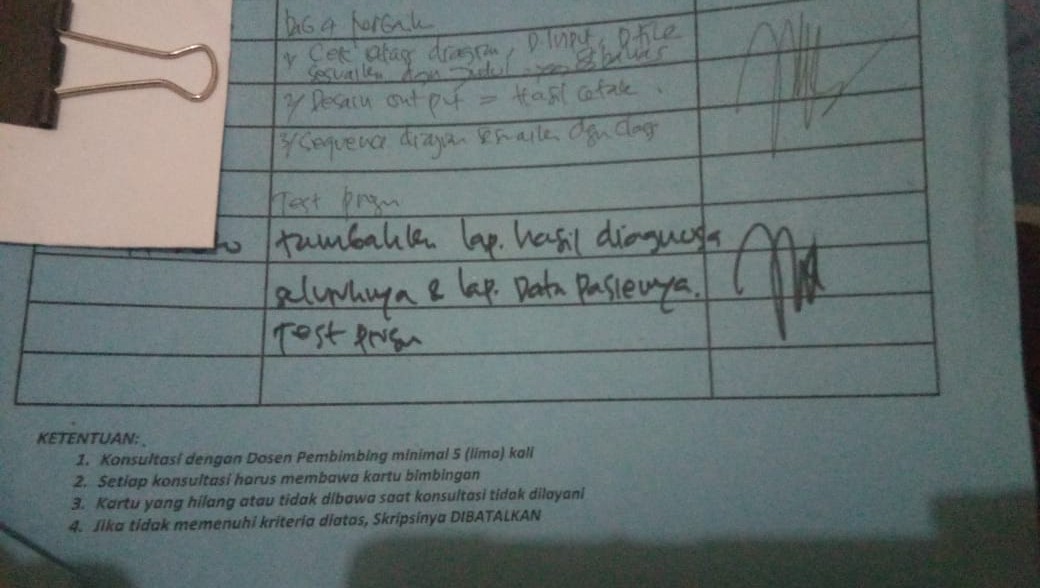 BAB 4 Perbaik
1/ Cek lag diagram, D.Input, D.file
sesuaikan dgn judul & bahas
2/ Desain output = Hasil cetak.
3/ Sequence diagram sesuaikan dgn Class
Test Prgm
tambahkan lap. hasil diagnosa
seluruhnya & lap. Data Pasiennya.
Test Prgm
KETENTUAN:
1. Konsultasi dengan Dosen Pembimbing minimal 5 (lima) kali
2. Setiap konsultasi harus membawa kartu bimbingan
3. Kartu yang hilang atau tidak dibawa saat konsultasi tidak dilayani
4. Jika tidak memenuhi kriteria diatas, Skripsinya DIBATALKAN